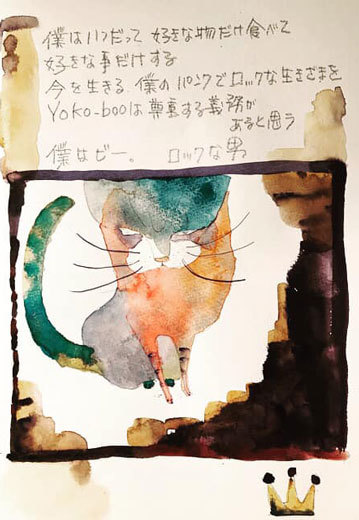 僕はいつだって 好きな物だけ食べて
好きな事だけする
今を生きる。僕のパンクでロックな生きざまを
Yoko-booは尊重する義務が
あると思う
僕はビー。 ロックな男